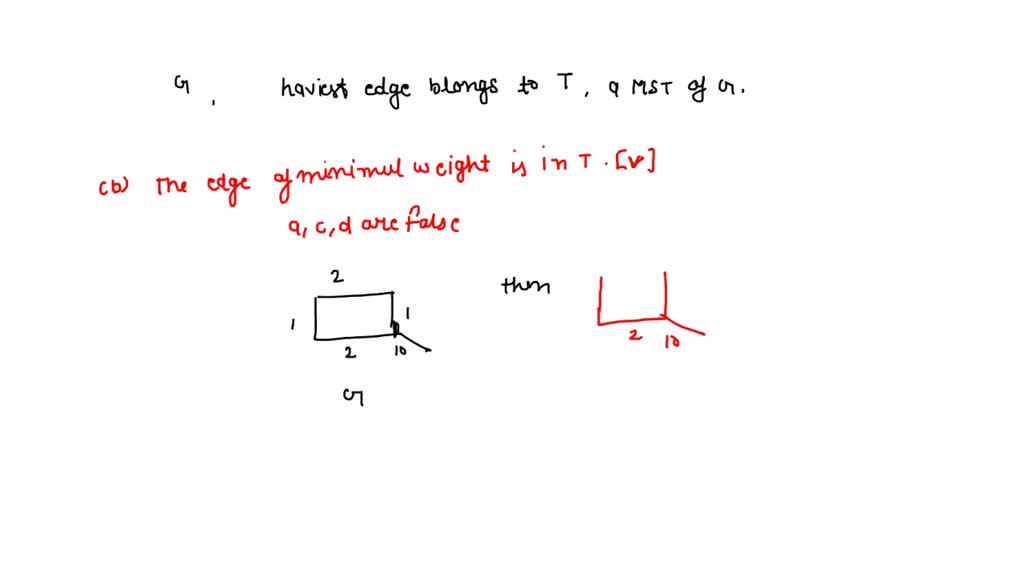 G, haviest edge blongs to T, a MST of G.
(b) The edge of minimul weight is in T. [✓]
a, c, d are false
2
then
1 1
2 10
2 10
G